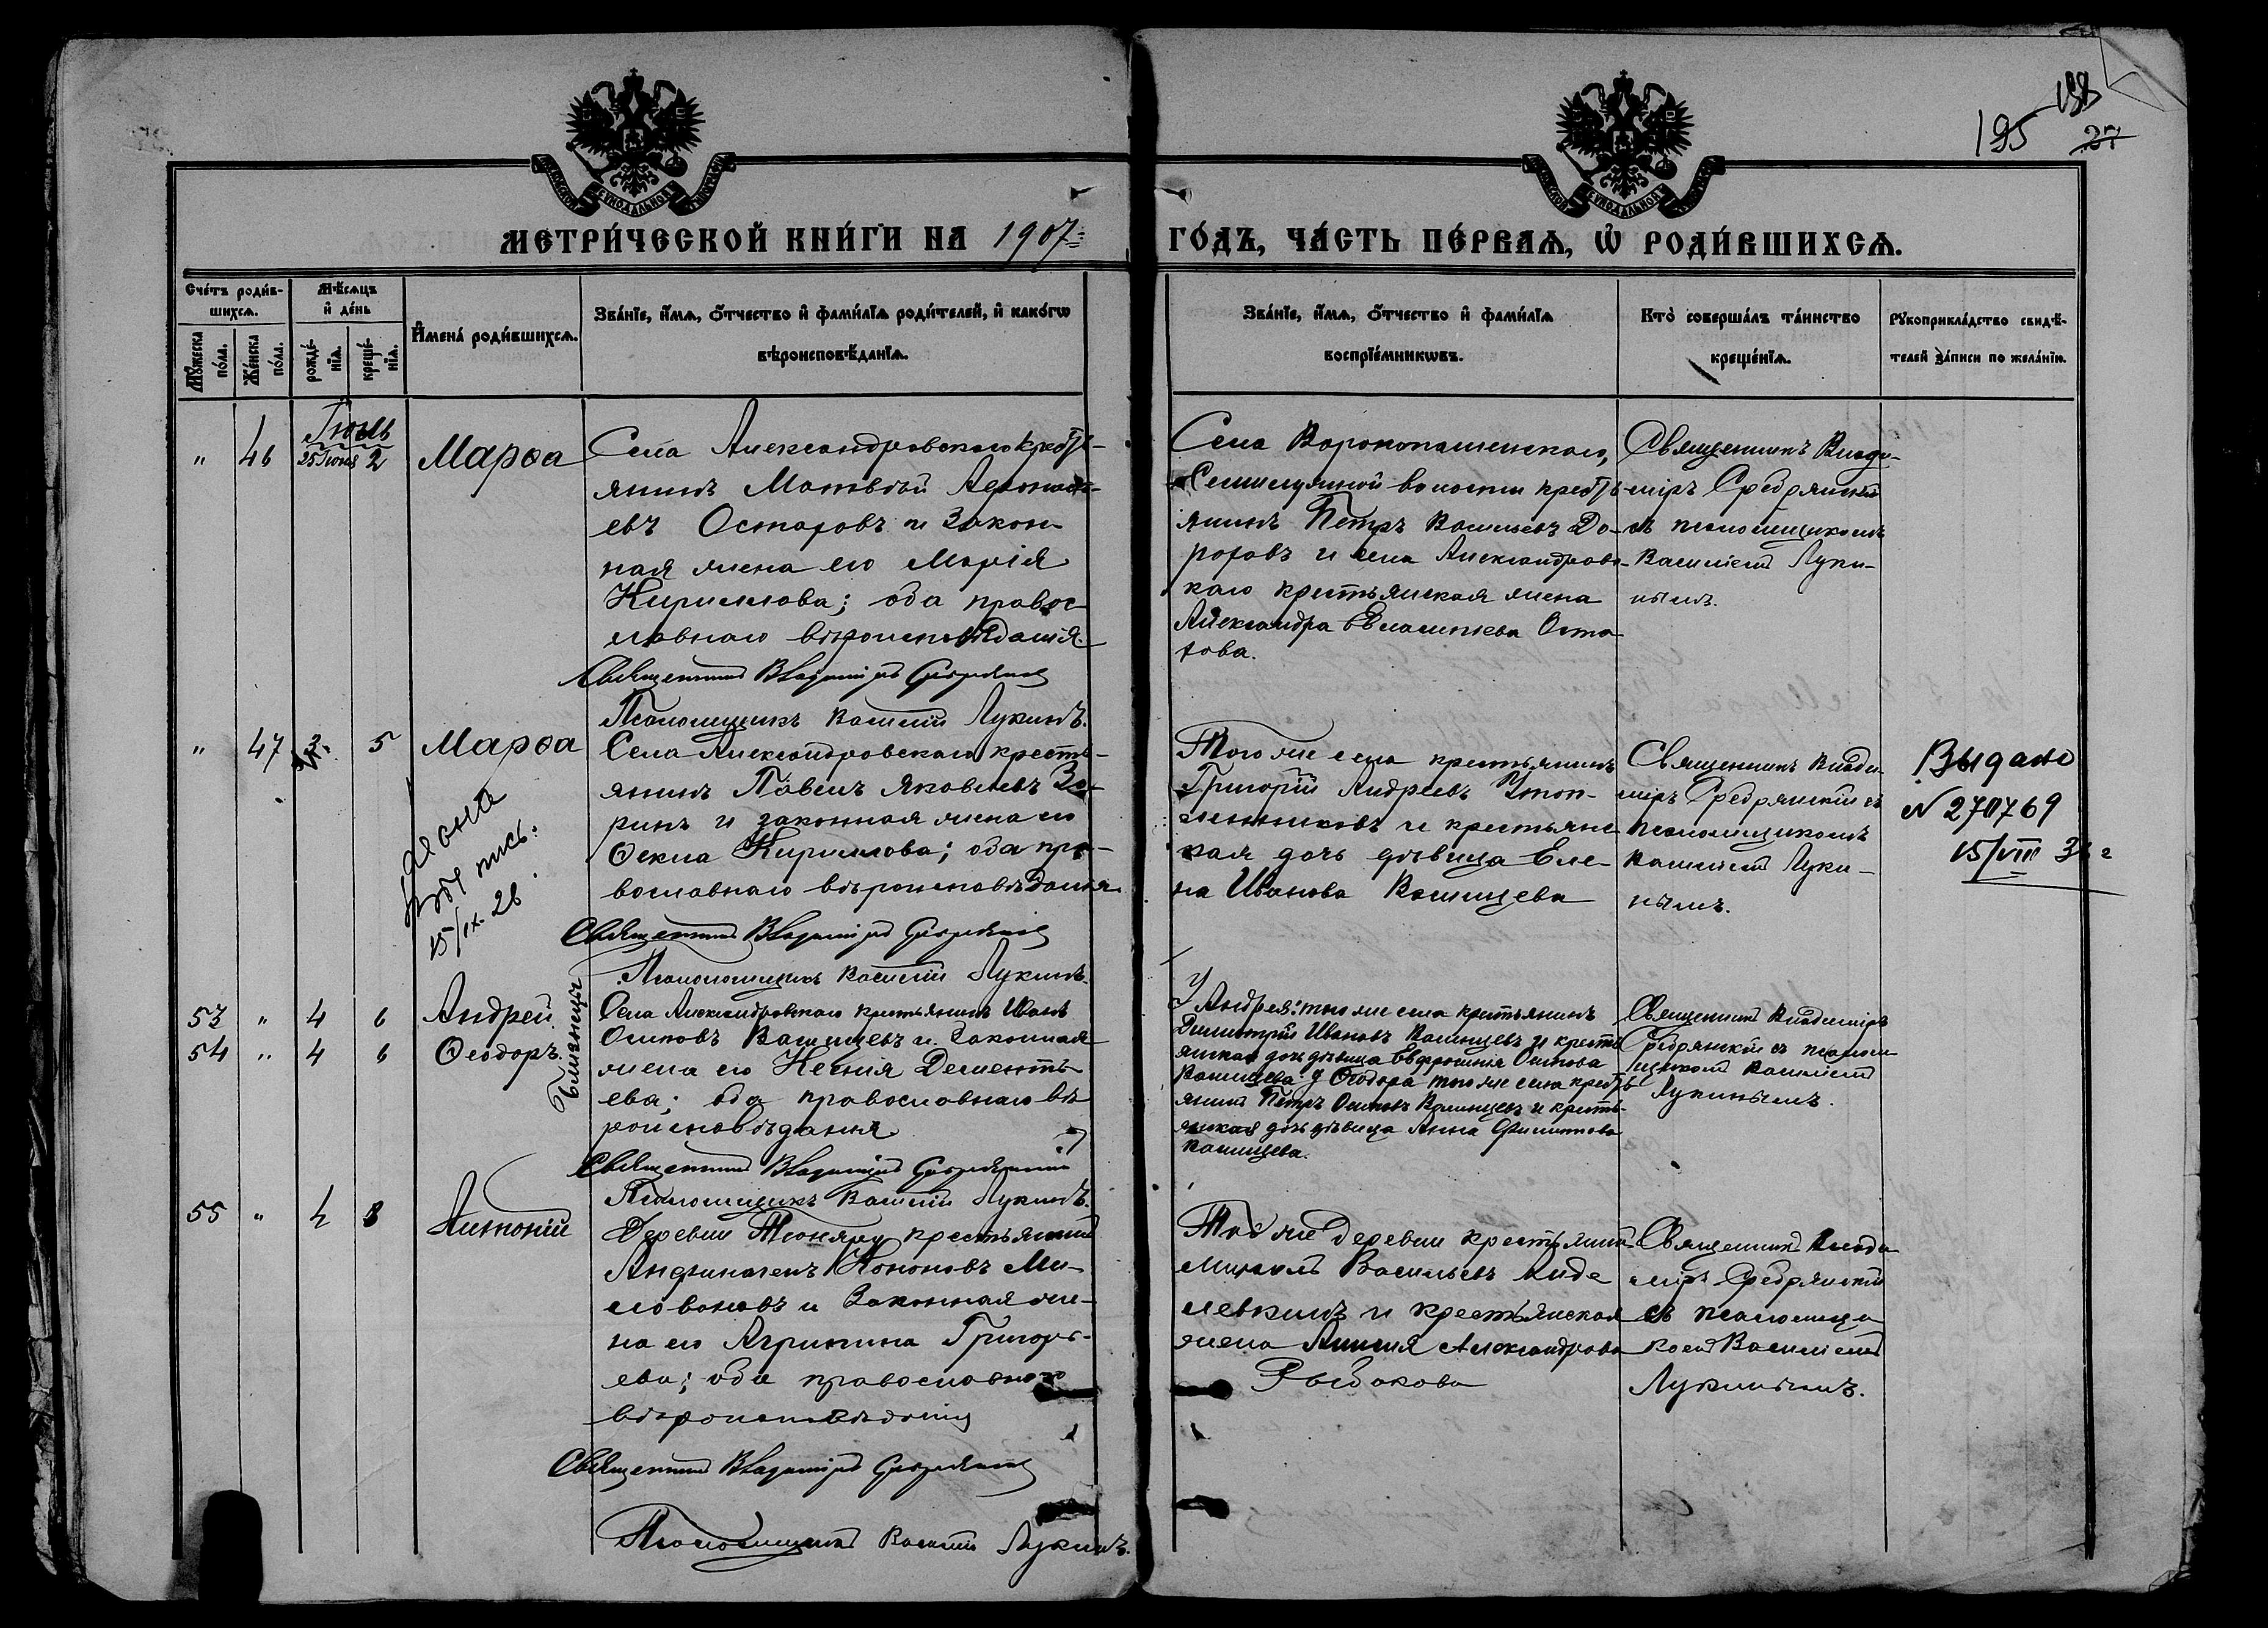 195
198
27
МЕТРИ́ЧЕСКОЙ КНИ́ГИ НА 1907
ГО́ДЪ, ЧА́СТЬ ПЕ́РВАѦ, Ѽ РОДИ́ВШИХСѦ.
Сче́тъ роди́в-
шихсѧ.
Мѣ́сѧцъ
и҆ де́нь
Мꙋжеска
по́ла.
Же́нска
по́ла.
рожде́-
нїѧ.
креще́-
нїѧ.
И҆мена̀ роди́вшихсѧ.
Зва́нїе, и҆́мѧ, ѻ҆́тчество и҆ фами́лїѧ роди́телей, и҆ како́гѡ
вѣроисповѣ́данїѧ.
Зва́нїе, и҆́мѧ, ѻ҆́тчество и҆ фами́лїѧ
воспрїе́мникѡвъ.
Кто̀ соверша́лъ та́инство
креще́нїѧ.
Рꙋкоприкла́дство свидѣ́-
телей за́писи по жела́нїю.
Іюль
" 46 25 Іюня 2 Марѳа
Села Александровскаго кресть-
янинъ Матвѣй Афонась-
евъ Остаповъ и закон-
ная жена его Марія
Кириллова; оба правос-
лавнаго вѣроисповѣданія.
Священникъ Владиміръ Сребрянскій
Псаломщикъ Василій Лукинъ.
Села Воронопашенскаго,
волости кресть-
янинъ Петръ Васильевъ До-
роховъ и села Александровс-
каго крестьянская жена
Александра Оста-
пова.
Священникъ Влади-
міръ Сребрянскій
съ псаломщикомъ
Василіемъ Луки-
нымъ.
" 47 3 5 Марѳа
15/IX-26
Села Александровскаго кресть-
янинъ Павелъ Яковлевъ Зе-
ринъ и законная жена его
Ѳекла Кириллова; оба пра-
вославнаго вѣроисповѣданія
Священникъ Владиміръ Сребрянскій
Псаломщикъ Василій Лукинъ.
Того же села крестьянинъ
Григорій Андреевъ
и крестьянс-
кая дочь дѣвица Еле-
на Иванова Ващищева
Священникъ Влади-
міръ Сребрянскій съ
псаломщикомъ
Василіемъ Луки-
нымъ.
Выдано
N 270769
15/VIII 36 г
53 " 4 6 Андрей
54 " 4 6 Ѳеодоръ.
Близнецы
Села Александровскаго крестьянинъ Иванъ
Осиповъ Ващищевъ и законная
жена его Ксенія Дементь-
ева; оба православнаго вѣ-
роисповѣданія
Священникъ Владиміръ Сребрянскій
Псаломщикъ Василій Лукинъ.
У Андрея: того же села крестьянинъ
Димитрій Ивановъ Ващищевъ и кресть-
янская дочь дѣвица Евфросинія Осипова
Ващищева. У Ѳеодора того же села кресть-
янинъ Петръ Осиповъ Ващищевъ и кресть-
янская дочь дѣвица Анна Филиппова
Ващищева.
Священникъ Владиміръ
Сребрянскій съ псалом-
щикомъ Василіемъ
Лукинымъ.
55 " 4 8 Антоній
Деревни крестьянинъ
Кононовъ Ми-
ловановъ и законная же-
на его Агрипина Григорь-
ева; оба православнаго
вѣроисповѣданія
Священникъ Владиміръ Сребрянскій
Псаломщикъ Василій Лукинъ.
Той же деревни крестьянинъ
Михаилъ Васильевъ
и крестьянская
жена Александрова
Рыбакова
Священникъ Влади-
міръ Сребрянскій
съ псаломщи-
комъ Василіемъ
Лукинымъ.